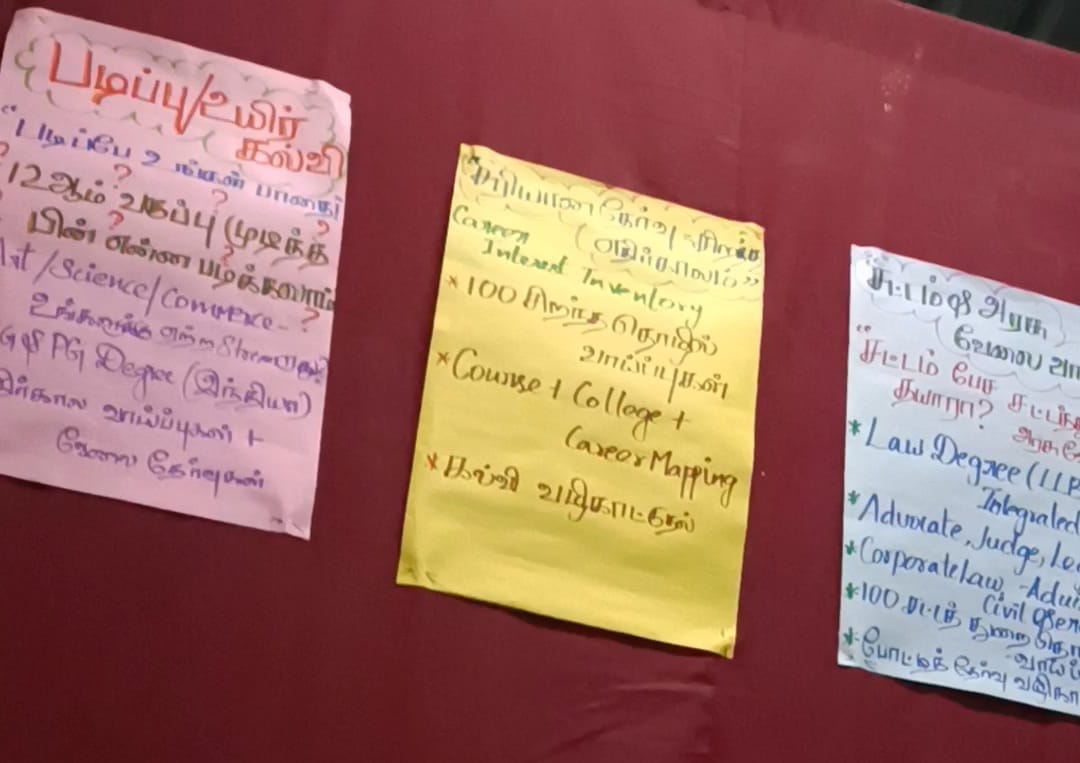 படிப்பு/உயிர்
கல்வி
"படிப்பே உங்கள் பாதை!
12ஆம் வகுப்பு முடித்த
பின் என்ன படிக்கலாம்
Art/Science/Commerce-?
உங்களுக்கு ஏற்ற Stream எது?
UG & PG Degree (இந்தியா)
எதிர்கால வாய்ப்புகள் +
வேலை தேர்வுகள்
"சரியான தேர்வு சிறந்த
எதிர்காலம்"
Career
Interest Inventory
* 100 சிறந்த தொழில்
வாய்ப்புகள்
* Course + College +
Career Mapping
* கல்வி வழிகாட்டுதல்
சட்டம் & அரசு
வேலை வா
"சட்டம் பேச சட்டத்
தயாரா?
* Law Degree (LLB
Integrated
* Advocate, Judge, Le
* Corporate Law, -Advi
Civil
* 100 சட்டத் துறை தொ
வாய்ப்
* போட்டித் தேர்வு வழிகா